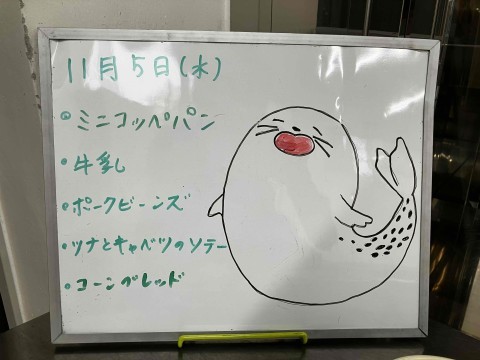 11月5日(水)
・ミニコッペパン
・牛乳
・ポークビーンズ
・ツナとキャベツのソテー
・コーンブレッド